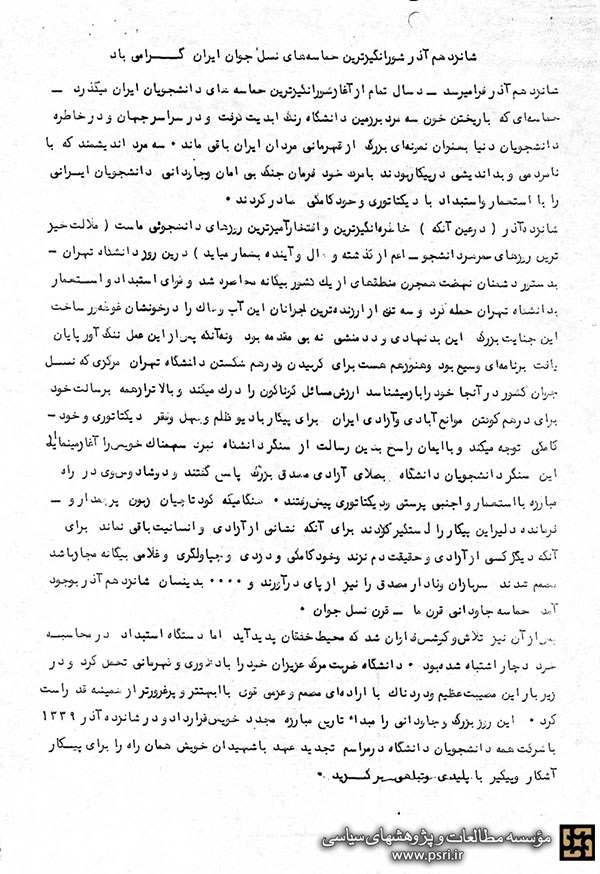 شانزدهم آذر شورانگیزترین حماسه‌های نسل جوان ایران گرامی باد
شانزدهم آذر فرامیرسد – دسال تمام از آغاز شورانگیزترین حماسه های دانشجویان ایران میگذرد –
حماسه‌ای که با ریختن خون سه مرد برزمین دانشگاه رنگ ابدیت گرفت و در سراسر جهان و در خاطره
دانشجویان دنیا بعنوان نمونه‌ای بزرگ از قهرمانی مردان ایران باقی ماند ۰ سه مرد اندیشمند که با
نامردمی و بداندیشی درپیکار بودند با مرد خود فرمان جنگ بی امان وجاودانی دانشجویان ایرانی
را با استعمار واستبداد با دیکتاتوری و خودکامگی صادر کردند ۰
شانزده‌آذر ( درعین آنکه ) خاطره‌انگیزترین و افتخارآمیزترین روزهای دانشجوئی ماست ( ملالت خیز
ترین روزهای عمر هر دانشجو – اعم از گذشته و حال و آینده بشمار میاید ) درین روز دانشگاه تهران –
بدستور دشمنان نهضت همچون منطقه‌ای از یک کشور بیگانه محاصره شد و قوای استبداد و استعمار
بدانشگاه تهران حمله کرد و سه تن از ارزنده‌ترین جوانان این آب و خاک را درخونشان غوطه‌ور ساخت
این جنایت بزرگ این بدنهادی و ددمنشی نه بی مقدمه بود ونه‌آنکه پس از این عمل ننگ آور پایان
یافت برنامه‌ای وسیع بود وهنوزهم هست برای کوبیدن ودرهم شکستن دانشگاه تهران مرکزی که نسل
جوان کشور در آنجا خود را بازمیشناسد ارزش مسائل گوناگون را درک میکند و بالاتر از همه برسالت خود
برای درهم کوفتن موانع آبادی وآزادی ایران برای پیکار بادیو ظلم و جهل وفقر دیکتاتوری و خود–
کامگی توجه میکند و باایمان راسخ بدین رسالت از سنگر دانشگاه نبرد سهمناک خویش را آغاز مینماید
این سنگر دانشجویان دانشگاه بصلای آزادی مصدق بزرگ پاس گفتند و دوشادوش وی در راه
مبارزه بااستعمار و اجنبی پرستی ودیکتاتوری پیش رفتند ۰ هنگامیکه کودتاچیان زبون پرچمدار و –
فرمانده دلیر این پیکار را دستگیر کردند برای آنکه نشانی از آزادی و انسانیت باقی نماند برای
آنکه دیگر کسی از آزادی و حقیقت دم نزند وخودکامگی و دزدی و چپاولگری و غلامی بیگانه مجاز باشد
مصمم شدند سربازان وفادار مصدق را نیز از پای درآورند و ۰۰۰۰ بدینسان شانزدهم آذر بوجود
آمد حماسه جاودانی قرن ما – قرن نسل جوان ۰
پس از آن نیز تلاش و کوشش فراوان شد که محیط خفقان پدید آید اما دستگاه استبداد در محاسبه
خود دچار اشتباه شده‌بود ۰ دانشگاه ضربت مرگ عزیزان خود را با دلاوری و قهرمانی تحمل کرد و در
زیر بار این مصیبت عظیم ودردناک با اراده‌ای مصمم و عزمی قوی باابهت‌تر و پرغرورتر از همیشه قد راست
کرد ۰ این روز بزرگ و جاودانی را مبداء تاریخ مبارزه مجدد خویش قرارداد و در شانزده آذر ۱۳۳۹
با شرکت همه دانشجویان دانشگاه درمراسم تجدید عهد باشهیدان خویش همان راه را برای پیکار
آشکار وپیگیر با پلیدی وتباهی برگزید ۰
مؤسسه مطالعات و پژوهشهای سیاسی
www.psri.ir